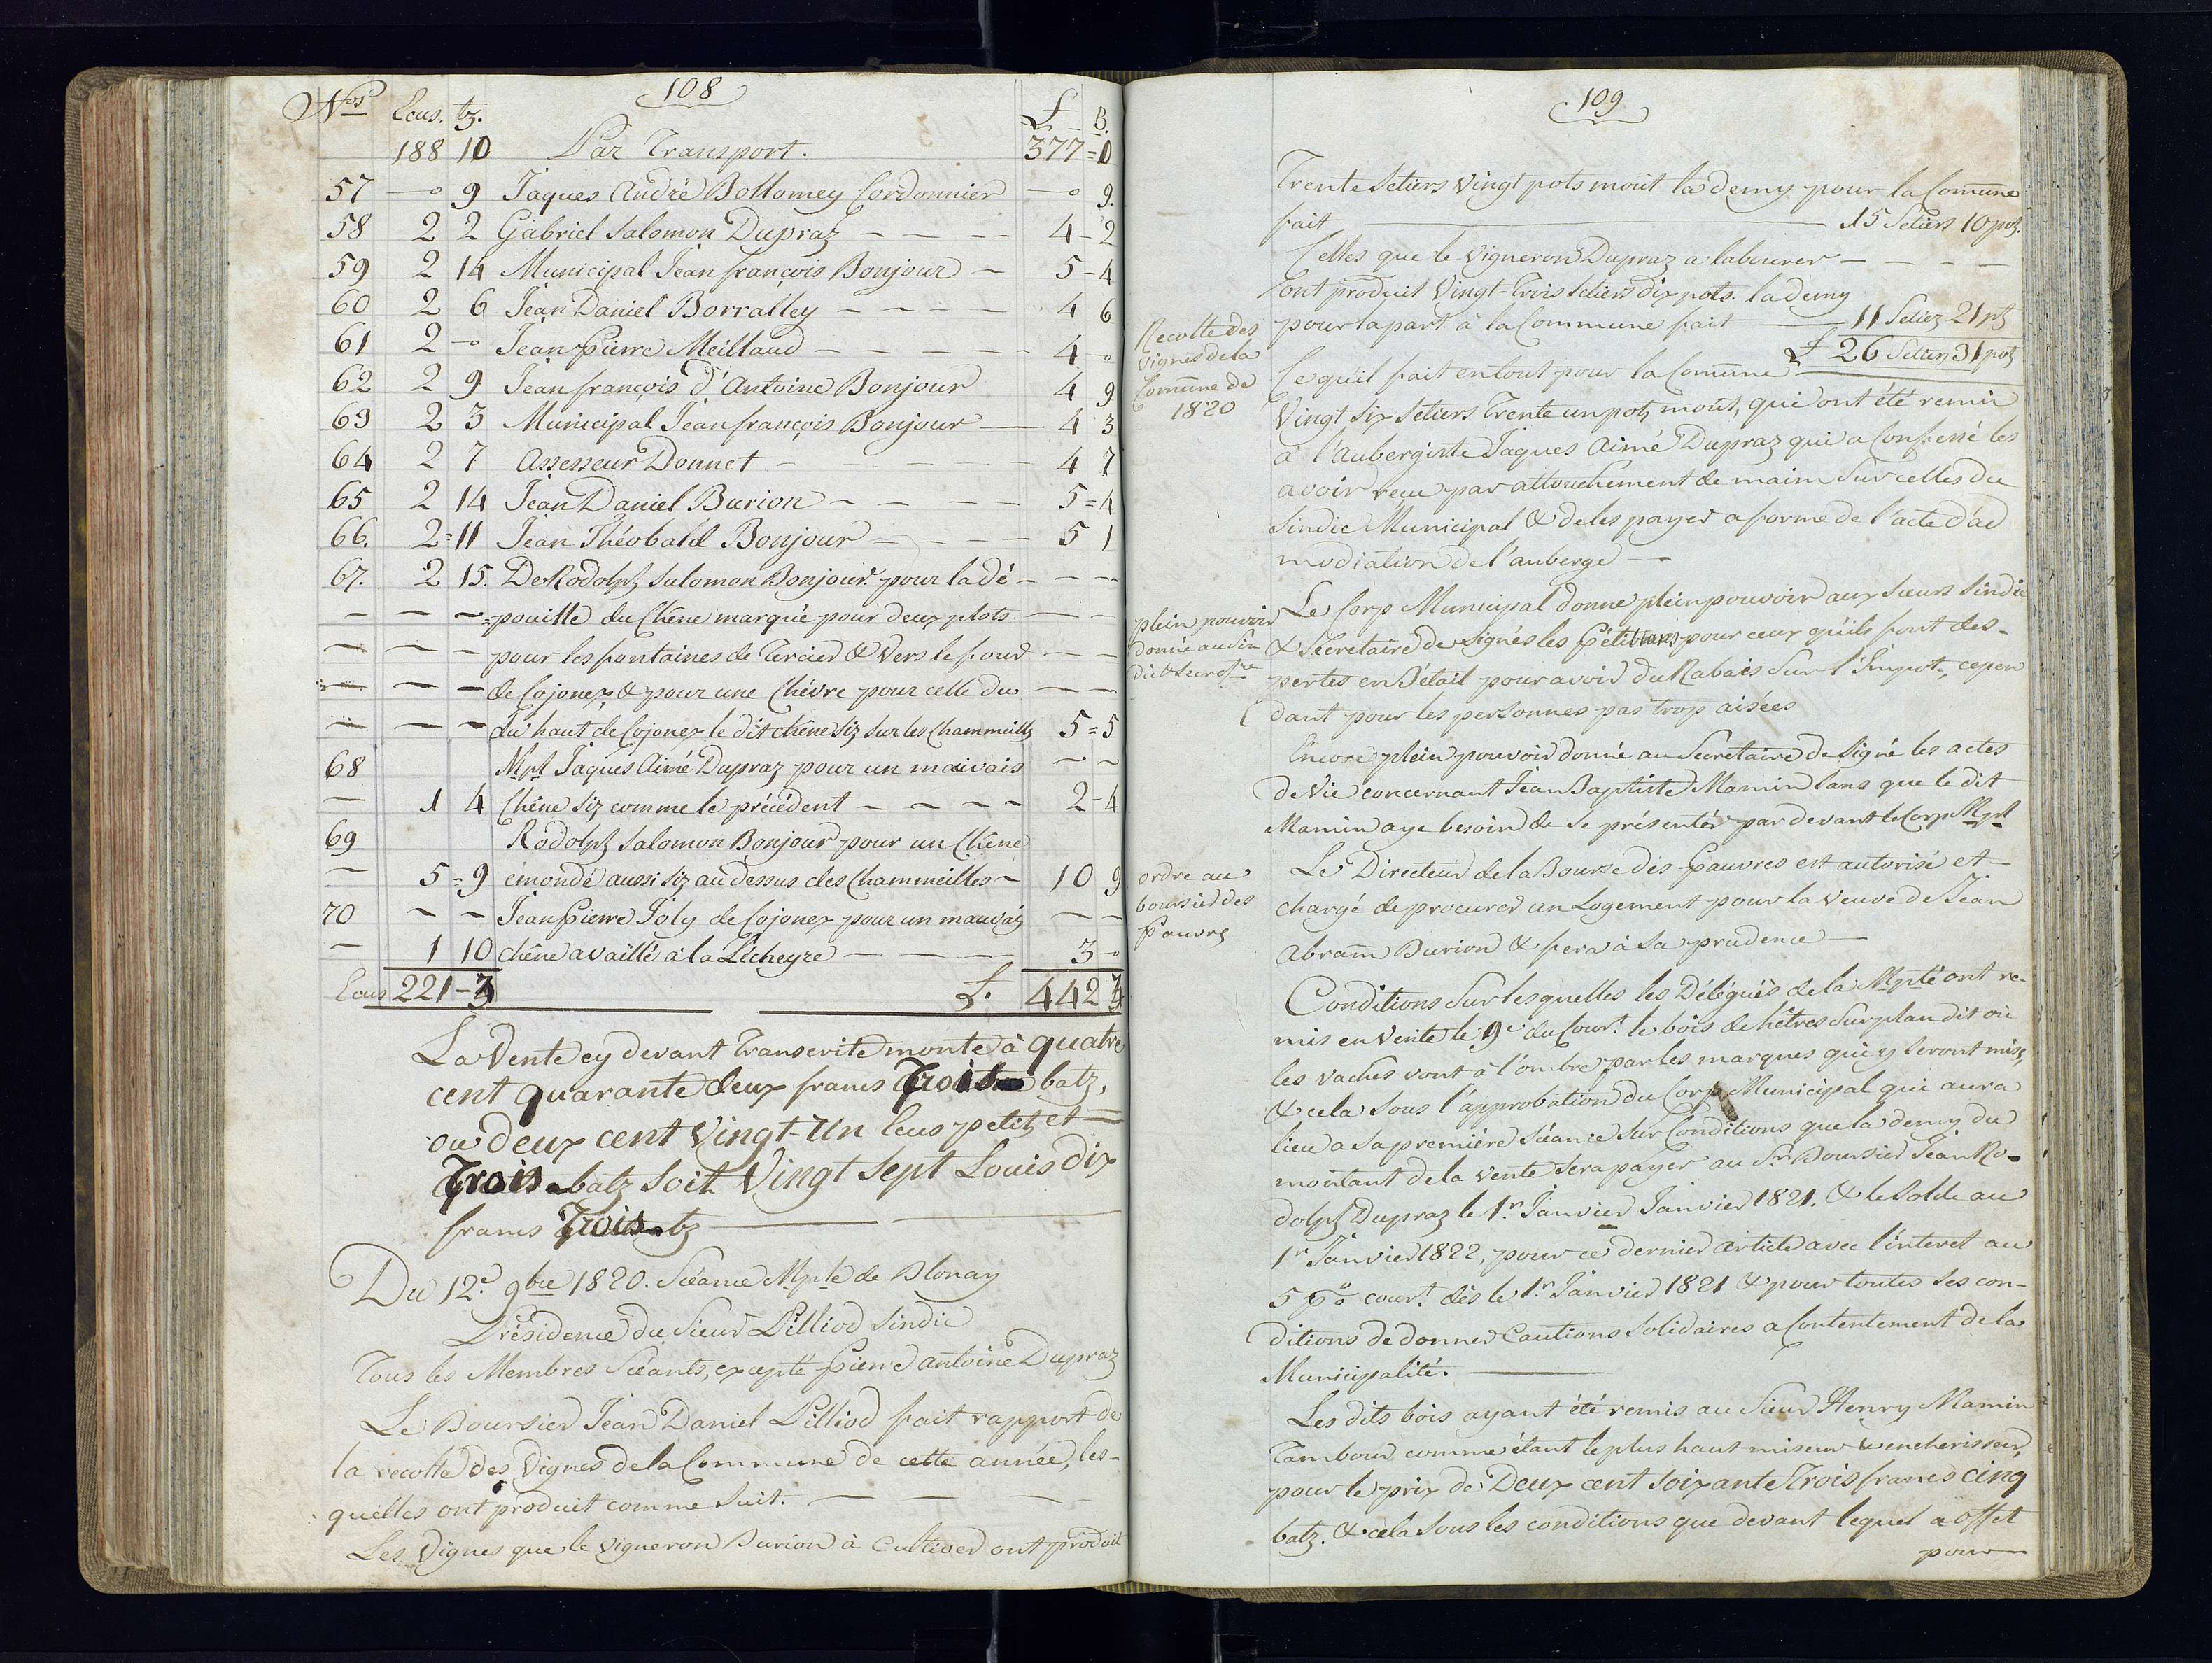 108
Nos Ecus. bz. L B.
188 10 Par Transport. 377=0
57 —o 9 Jaques André Bottomey Cordonnier —o 9.
58 2 2 Gabriel Salomon Dupraz — — — — 4-2
59 2 14 Municipal Jean françois Bonjour — 5-4
60 2 6 Jean Daniel Borralley — — — — 4 6
61 2 -o Jean Pierre Meillaud — — — — — 4-o
62 2 9 Jean françois d'Antoine Bonjour 4 9
63 2 3 Municipal Jean françois Bonjour — 4 3
64 2 7 Assesseur Donnet — — — — 4 7
65 2 14 Jean Daniel Burion — — — — 5=4
66. 2=11 Jean Théobald Bonjour — — — — 5 1
67. 2 15. De Rodolph Salomon Bonjour pour la dé — — —
— — — =pouille du Chêne marqué pour deux plots — —
— — — pour les fontaines de Tercier & Vers le four — —
— — — de Cojonex, & pour une Chévre pour celle du — —
— — — du haut de Cojonex le dit chêne siz sur les Chammeilles 5=5
68 Mpl Jaques Aimé Dupraz pour un mauvais — —
— 1 4 Chêne siz comme le précédent — — — — 2-4
69 Rodolph Salomon Bonjour pour un Chêne
— 5=9 émondé aussi siz au dessus des Chammeilles — 10 9
70 — — Jean Pierre Joly de Cojonex pour un mauvais — —
— 1 10 chêne availlé à la Lécheyre — — — — 3-o
Ecus 221-3 L. 442 3
La Vente cy devant Transcrite monte à quatre
cent quarante deux francs Trois batz,
ou deux cent Vingt-Un Ecus petits et —
Trois batz soit Vingt sept Louis dix
francs Trois bz
Du 12e. 9bre 1820. Séance Mplé de Blonay
Présidence du Sieur Pilliod Sindic
Tous les Membres Séants, excepté Pierre Antoine Dupraz
Le Boursier Jean Daniel Pilliod fait rapport de
la recolte des Vignes de la Commune de cette année, les-
quelles ont produit comme suit. — — —
Les Vignes que le Vigneron Burion à Cultiver ont produit
109
Trente Setiers Vingt pots moût la demy pour la Comune
fait — 15 Setiers 10 pots.
Celles que le Vigneron Dupraz a labourer — — — —
ont produit Vingt-Trois Setiers dix pots. la demy
pour la part à la Commune fait — 11 Setiez 21 pts
Recolte des
Vignes de la
Comune de
1820
£ 26 Setiers 31 pots
Ce qu'il fait en tout pour la Comune
Vingt Six Setiers Trente un pots moût, qui ont été remis
à l'Aubergiste Jaques Aimé Dupraz qui a Confessé les
avoir reçu par attouchement de main sur celles du
Sindic Municipal & de les payer a forme de l'acte d'ad
modiation de l'auberge —
plein pouvoir
donné au Sin
dic & Secretre
Le Corp Municipal donne plein pouvoir aux Sieurs Sindic
& Secrétaire de signés les Pétitions pour ceux qu'ils font des-
pertes en Bétail pour avoir du Rabais Sur l'Impot, cepen
dant pour les personnes pas trop aisées
Encore plein pouvoir donné au Secretaire de Signé les actes
de Vie concernant Jean Baptiste Mamin sans que le dit
Mamin aye besoin de se présenter par devant le Corp Mpl
ordre au
boursier des
Pauvres
Le Directeur de la Bourse des Pauvres est autorisé et
chargé de procurer un Logement pour la Veuve de Jean
Abram Burion & fera à Sa prudence —
Conditions Sur lesquelles les Délégués de la Mplté ont re-
mis en Vente le 9e du Court. le bois de hêtres Sur plan dit où
les vaches vont à l'ombre par les marques qui y seront mise,
& cela Sous l'approbation du Corp Municipal qui aura
lieu a Sa première Séance Sur Conditions que la demy du
montant de la Vente Sera payer au Sr Boursier Jean Ro-
dolph Dupraz le 1r. Janvier Janvier 1821. & le Solde au
1r Janvier 1822, pour ce dernier article avec l'interet au
5 p% court. dès le 1r. Janvier 1821 & pour toutes les con-
ditions de donner Cautions Solidaires a Contentement de la
Municipalité.
Les dits bois ayant été remis au Sieur Henry Mamin
Tambour comme étant le plus haut miseur & encherisseur,
pour le prix de Deux cent Soixante Trois francs cinq
batz. & cela Sous les conditions que devant lequel a offet
pour